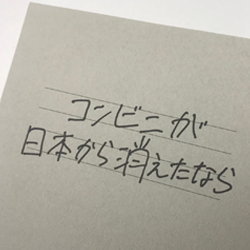 コンビニが
日本から消えたなら